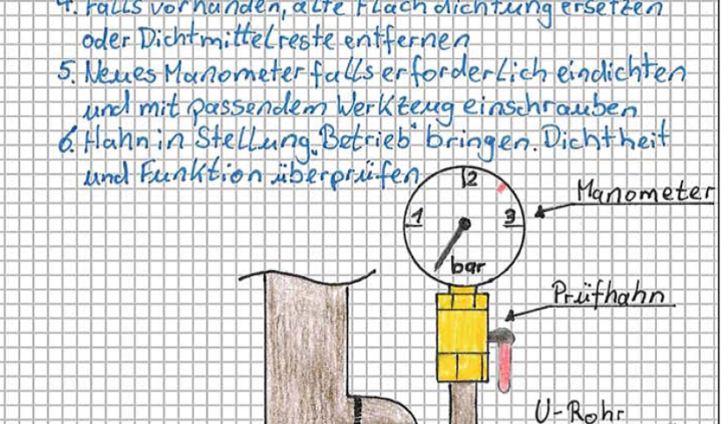 4. Falls vorhanden, alte Flachdichtung ersetzen
oder Dichtmittelreste entfernen
5. Neues Manometer falls erforderlich eindichten
und mit passendem Werkzeug einschrauben
6. Hahn in Stellung „Betrieb“ bringen. Dichtheit
und Funktion überprüfen
2
1
3
bar
Manometer
Prüfhahn
U-Rohr